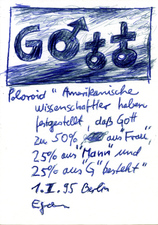 GOtt
Poloroid " Amerikanische
Wissenschaftler haben
festgestellt, daß Gott
zu 50% aus "Frau",
25% aus "Mann" und
25% aus "G" besteht"
1. II. 95 Berlin